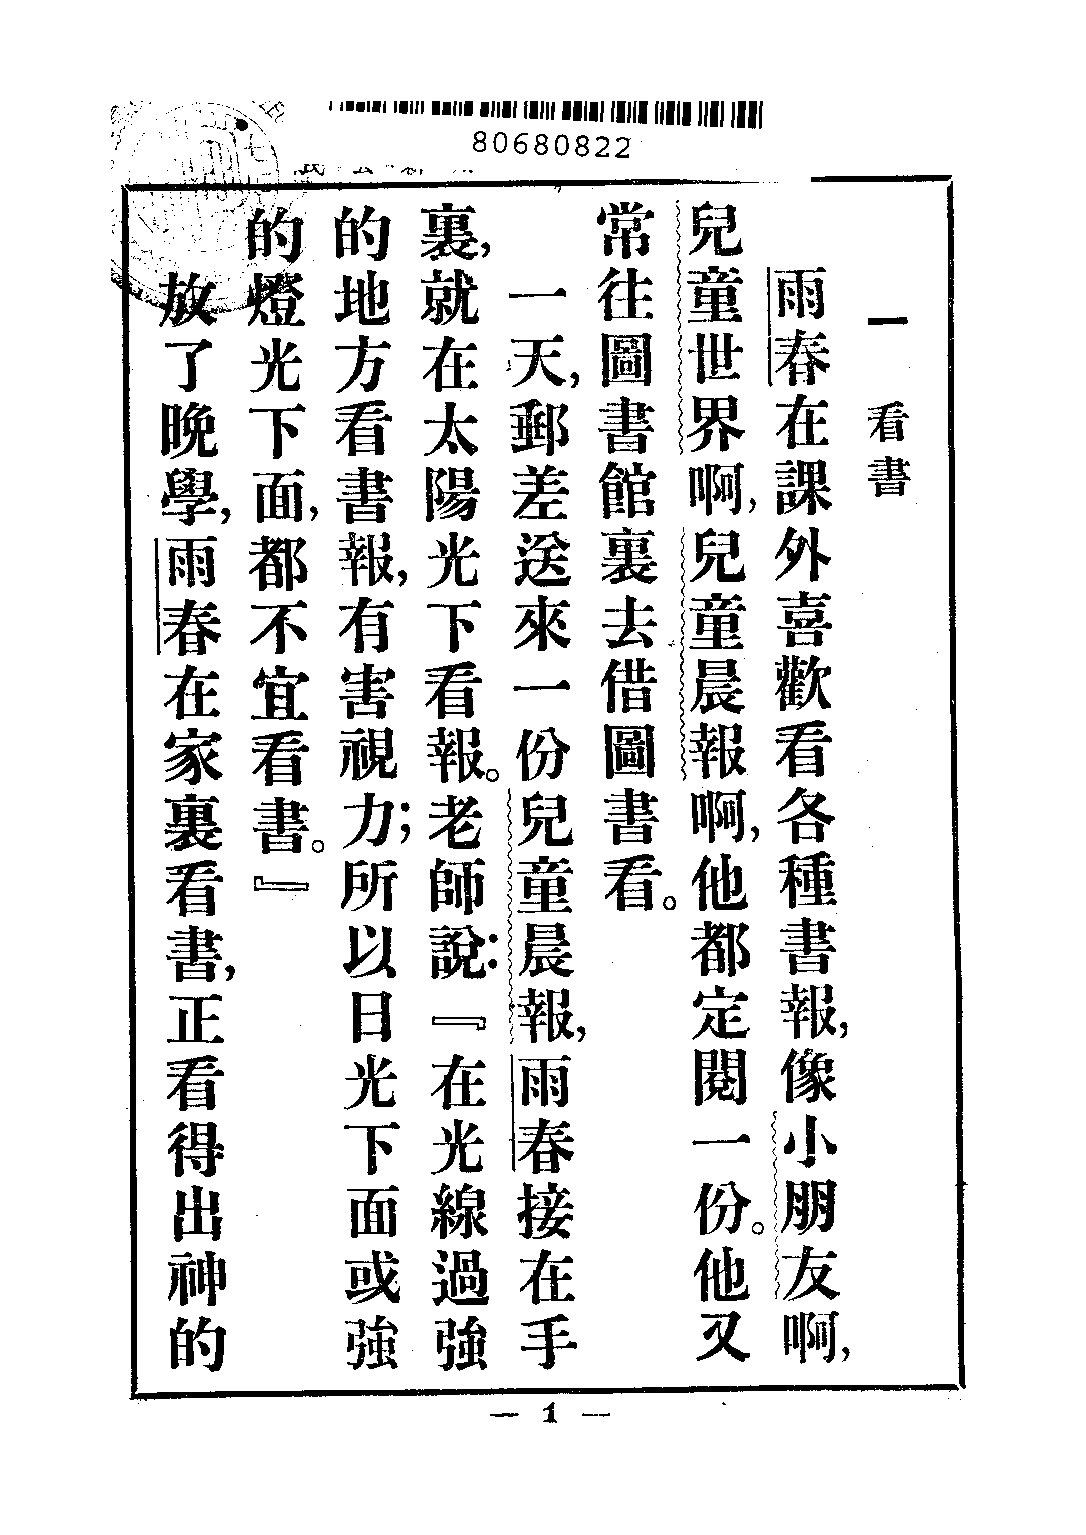 80680822
一 看書
雨春在課外喜歡看各種書報,像小朋友啊,
兒童世界啊,兒童晨報啊,他都定閱一份。他又
常往圖書館裏去借圖書看。
一天,郵差送來一份兒童晨報,雨春接在手
裏,就在太陽光下看報。老師說:『在光線過強
的地方看書報,有害視力;所以日光下面或強
的燈光下面,都不宜看書。』
放了晚學,雨春在家裏看書,正看得出神的
— 1 —